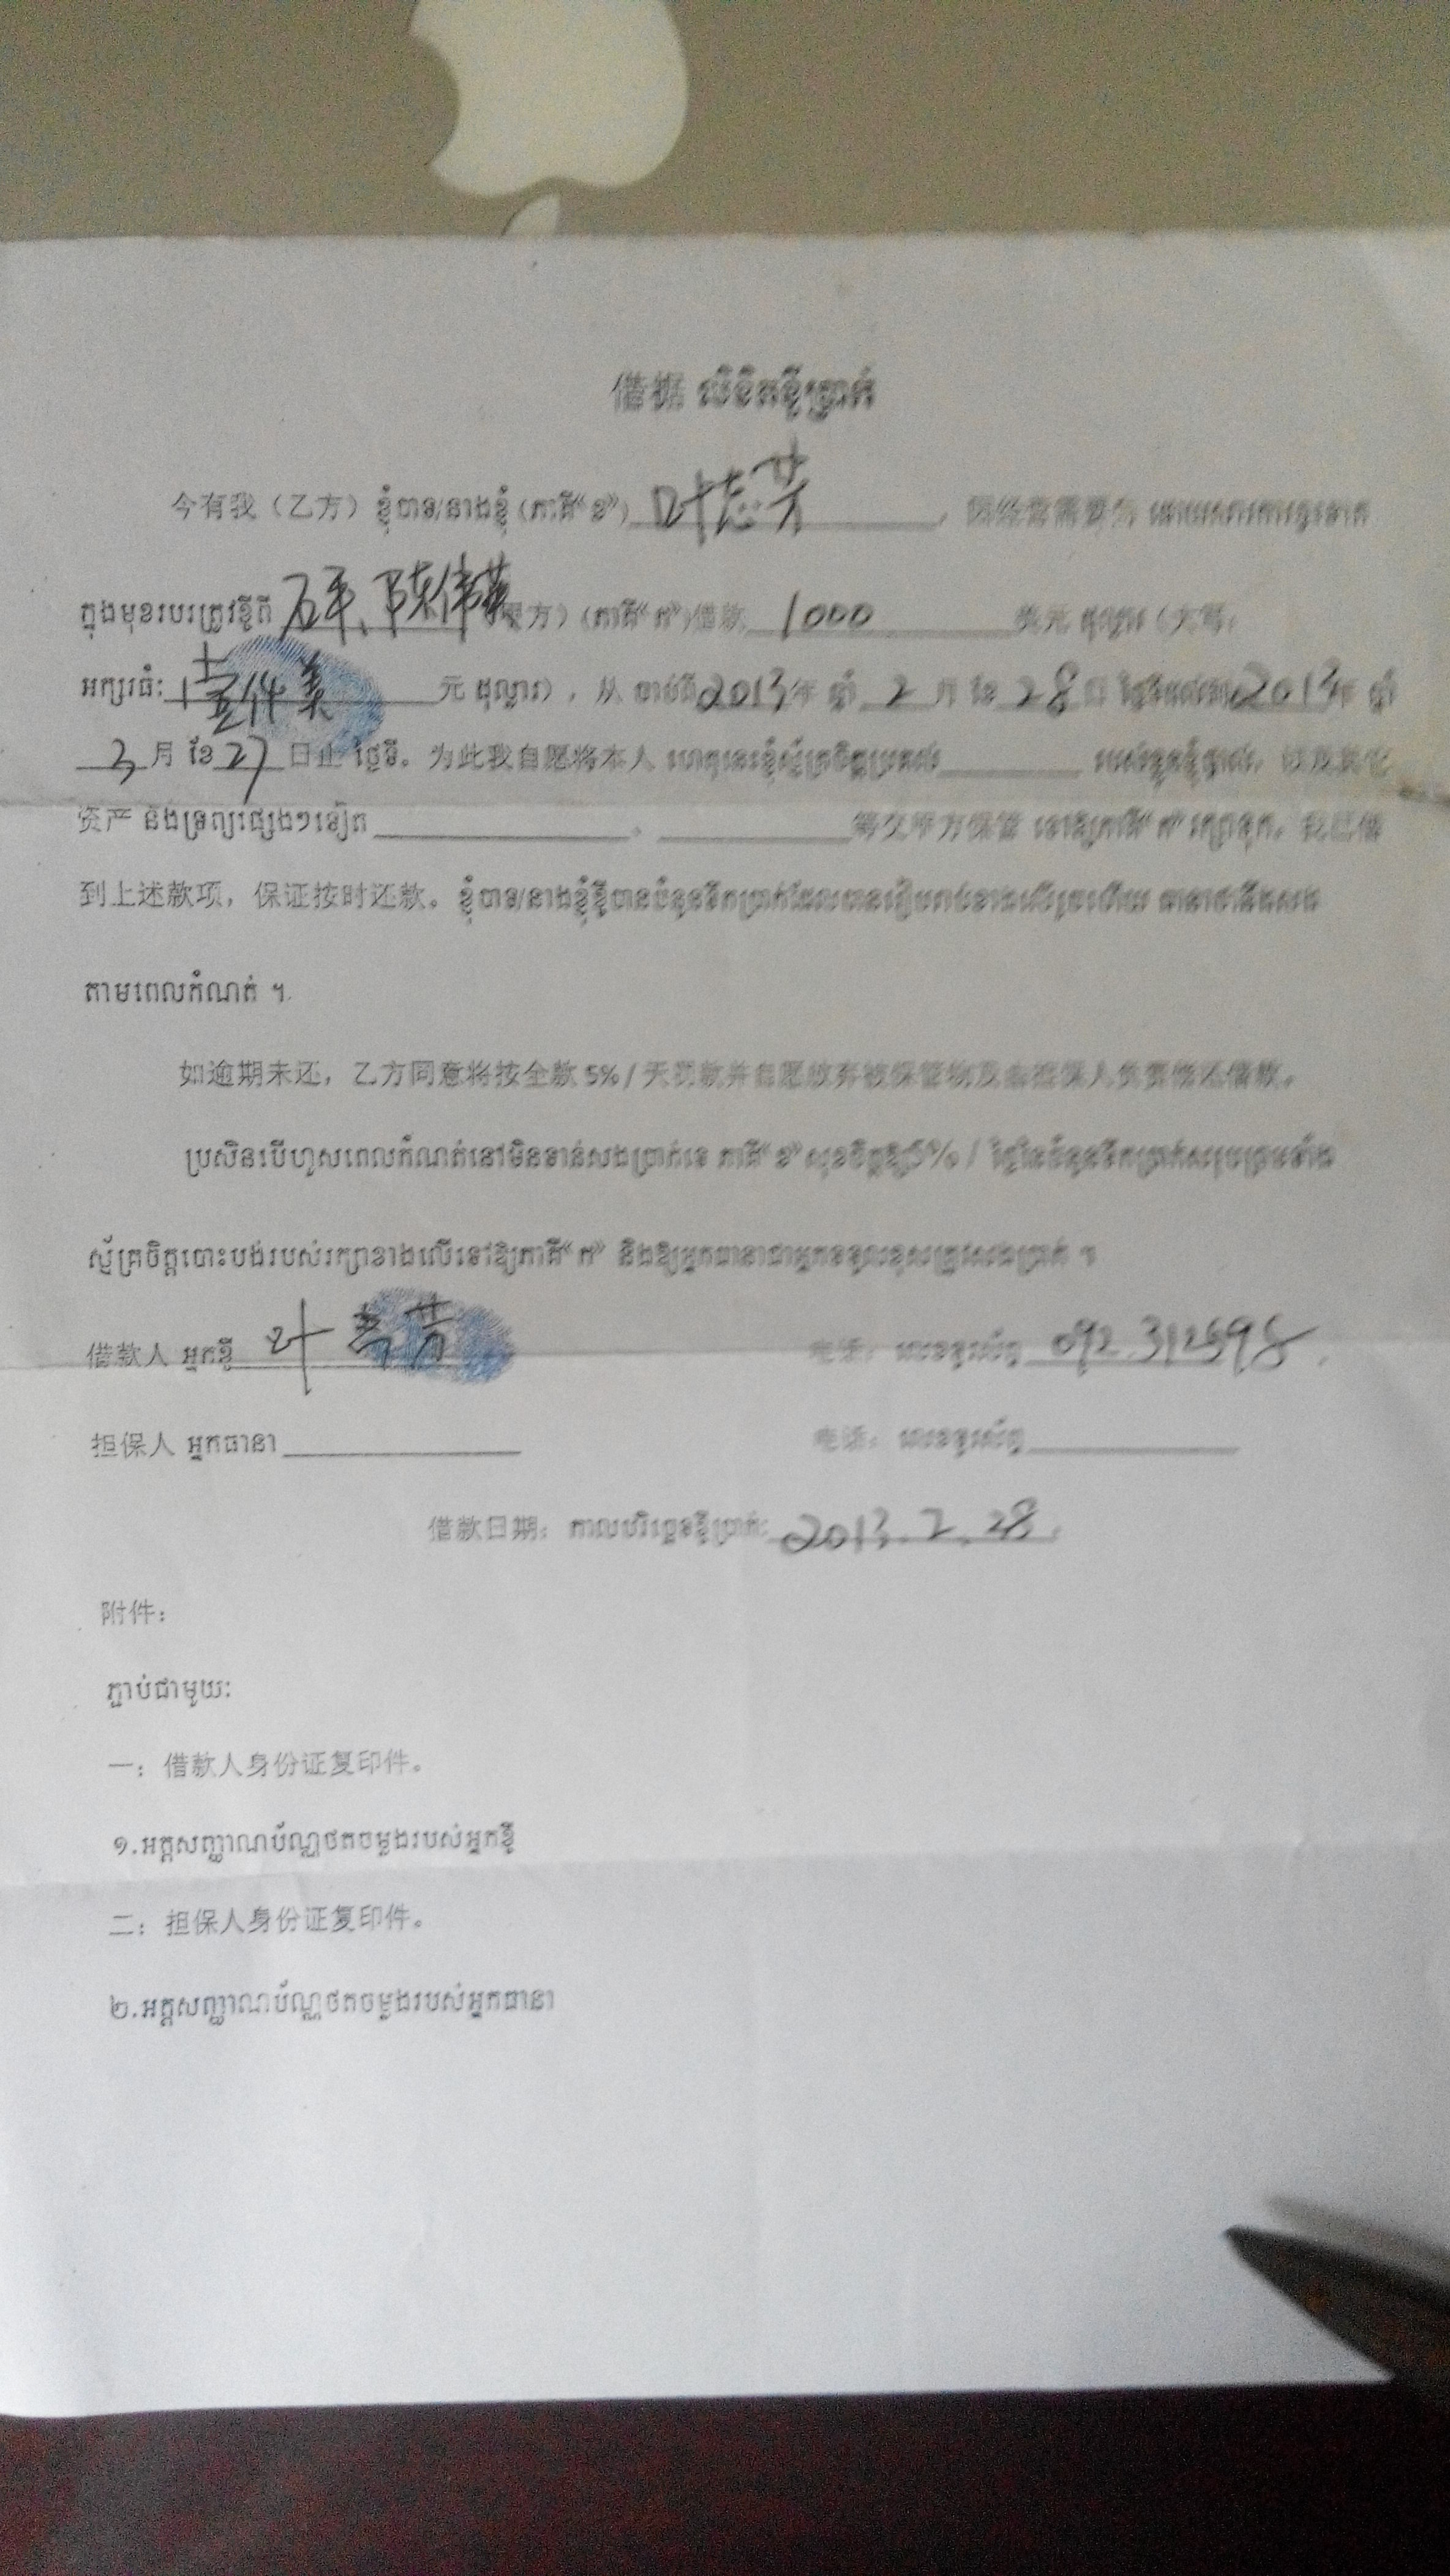 借据 លិខិតខ្ចីប្រាក់
今有我（乙方）ខ្ញុំបាទ/នាងខ្ញុំ (ភាគី“ខ”) 叶志芳 ，因经营需要向
ក្នុងមុខរបរត្រូវខ្ចីពី 石平、陈伟 甲方）(ភាគី“ក”)借款 1000 美元 ដុល្លារ（大写：
អក្សរធំ: 壹仟美 元 ដុល្លារ），从 ចាប់ពី 2013 年 ឆ្នាំ 2 月 ខែ 28 日 2013 年 ឆ្នាំ
3 月 ខែ 27 日止 ថ្ងៃទី. 为此我自愿将本人 ហេតុនេះខ្ញុំស្ម័គ្រចិត្តប្រគល់ របស់ខ្លួនខ្ញុំផ្ទាល់, 以及其它
资产 និងទ្រព្យផ្សេងៗទៀត 。 等交甲方保管 ទៅឱ្យភាគី“ក” រក្សាទុក. 我已借
到上述款项，保证按时还款。ខ្ញុំបាទ/នាងខ្ញុំខ្ចីបានចំនួនទឹកប្រាក់ដែលបានរៀបរាប់ខាងលើរួចហើយ ធានាថានឹងសង
តាមពេលកំណត់ ។
如逾期未还，乙方同意将按全款 5% / 天罚款并自愿放弃被保管物及由担保人负责偿还借款。
ប្រសិនបើហួសពេលកំណត់នៅមិនទាន់សងប្រាក់ទេ ភាគី“ខ” សុខចិត្តឱ្យ5% / ថ្ងៃនៃចំនួនទឹកប្រាក់សរុបព្រមទាំង
ស្ម័គ្រចិត្តបោះបង់របស់រក្សាខាងលើទៅឱ្យភាគី“ក” និងឱ្យអ្នកធានាជាអ្នកទទួលខុសត្រូវសងប្រាក់ ។
借款人 អ្នកខ្ចី 叶志芳 电话：លេខទូរស័ព្ទ 092.312698
担保人 អ្នកធានា 电话：លេខទូរស័ព្ទ
借款日期：កាលបរិច្ឆេទខ្ចីប្រាក់: 2013.2.28
附件：
ភ្ជាប់ជាមួយ:
一：借款人身份证复印件。
១.អត្តសញ្ញាណប័ណ្ណថតចម្លងរបស់អ្នកខ្ចី
二：担保人身份证复印件。
២.អត្តសញ្ញាណប័ណ្ណថតចម្លងរបស់អ្នកធានា